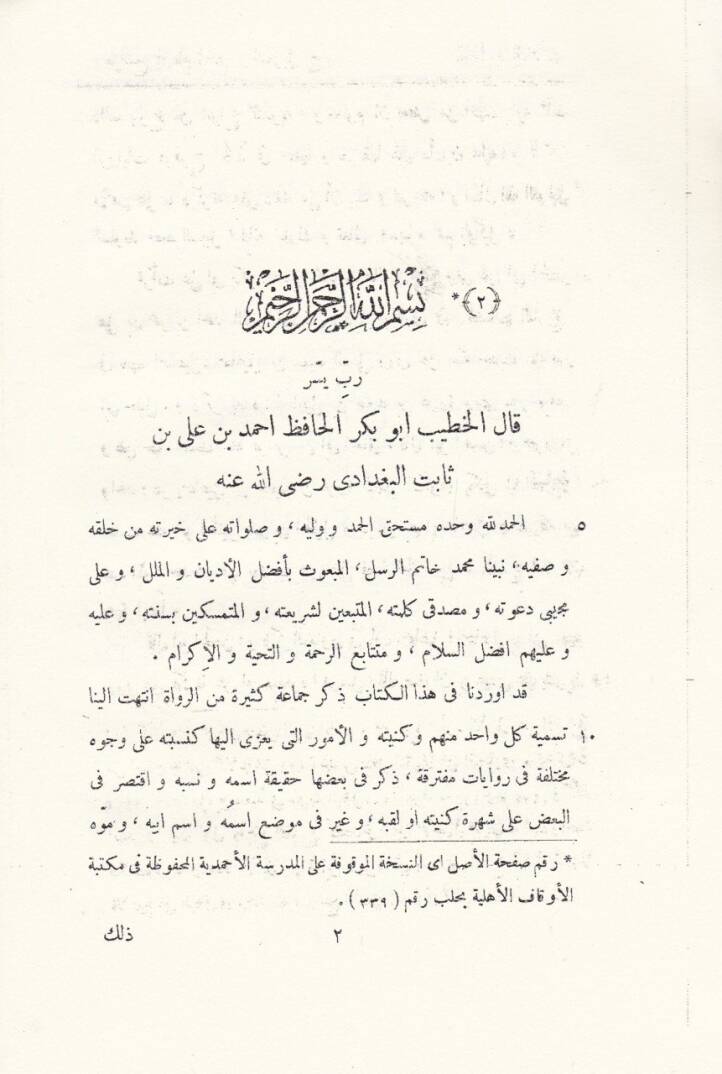 ﴿٢﴾* بسم الله الرحمن الرحيم
ربِّ يسّر
قال الخطيب ابو بكر الحافظ احمد بن على بن
ثابت البغدادى رضى الله عنه
٥ الحمد لله وحده مستحق الحمد و وليه، و صلواته على خيرته من خلقه
و صفيه، نبينا محمد خاتم الرسل، المبعوث بأفضل الأديان و الملل، و على
مجيبى دعوته، و مصدقى كلمته، المتبعين لشريعته، و المتمسكين بسنته، و عليه
و عليهم افضل السلام، و متتابع الرحمة و التحية و الإكرام.
قد اوردنا فى هذا الكتاب ذكر جماعة كثيرة من الرواة انتهت الينا
١٠ تسمية كل واحد منهم و كنيته و الأمور التى يعزى اليها كنسبته على وجوه
مختلفة فى روايات مفترقة، ذكر فى بعضها حقيقة اسمه و نسبه و اقتصر فى
البعض على شهرة كنيته او لقبه، و غير فى موضع اسمُه و اسم ابيه، و موّه
* رقم صفحة الأصل اى النسخة الموقوفة على المدرسة الأحمدية المحفوظة فى مكتبة
الأوقاف الأهلية بحلب رقم (٣٣٩).
٢ ذلك